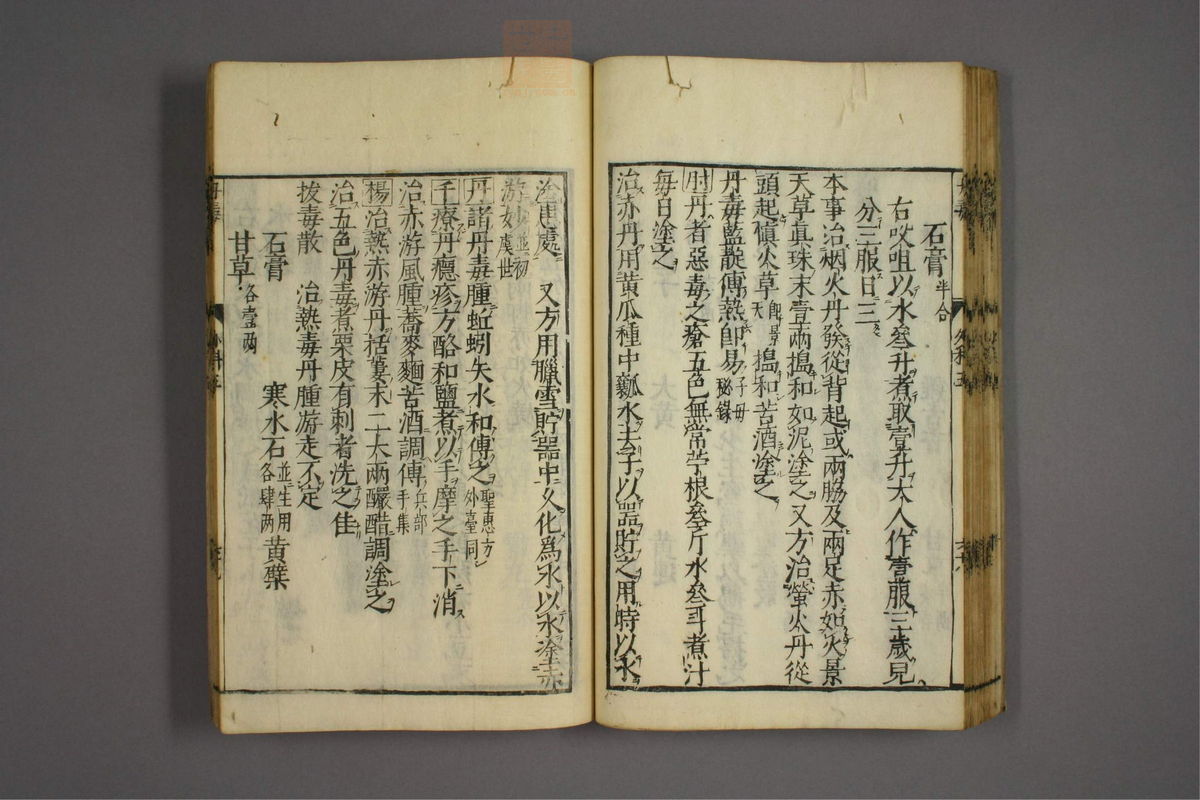 石膏半合
右㕮咀以水叄升煮取壹升大人作壹服三歲兒
分三服日三
本事治烟火丹發從背起或兩脇及兩足赤如火景
天草真珠末壹兩搗和如泥塗之又方治螢火丹從
頭起愼火草即景天搗和苦酒塗之
丹毒藍靛傅熱即易子母秘錄
肘丹者惡毒之瘡五色無常苧根叄斤水叄斗煮汁
每日塗之
治赤丹用黃瓜種中瓤水去子以器貯之用時以水
塗患處 又方用臘雪貯器中久化爲水以水塗赤
游妙並初虞世
丹諸丹毒腫蚯蚓矢水和傅之聖惠方外臺同
千療丹癮疹方酪和鹽煮以手摩之手下消
治赤游風腫蕎麥麵苦酒調傅兵部手集
楊治熱赤游丹栝蔞末二大兩釅醋調塗之
治五色丹毒煮栗皮有刺者洗之佳
拔毒散 治熱毒丹腫游走不定
石膏 寒水石並生用各肆两 黃蘗
甘草各壹两
丹毒
外科五